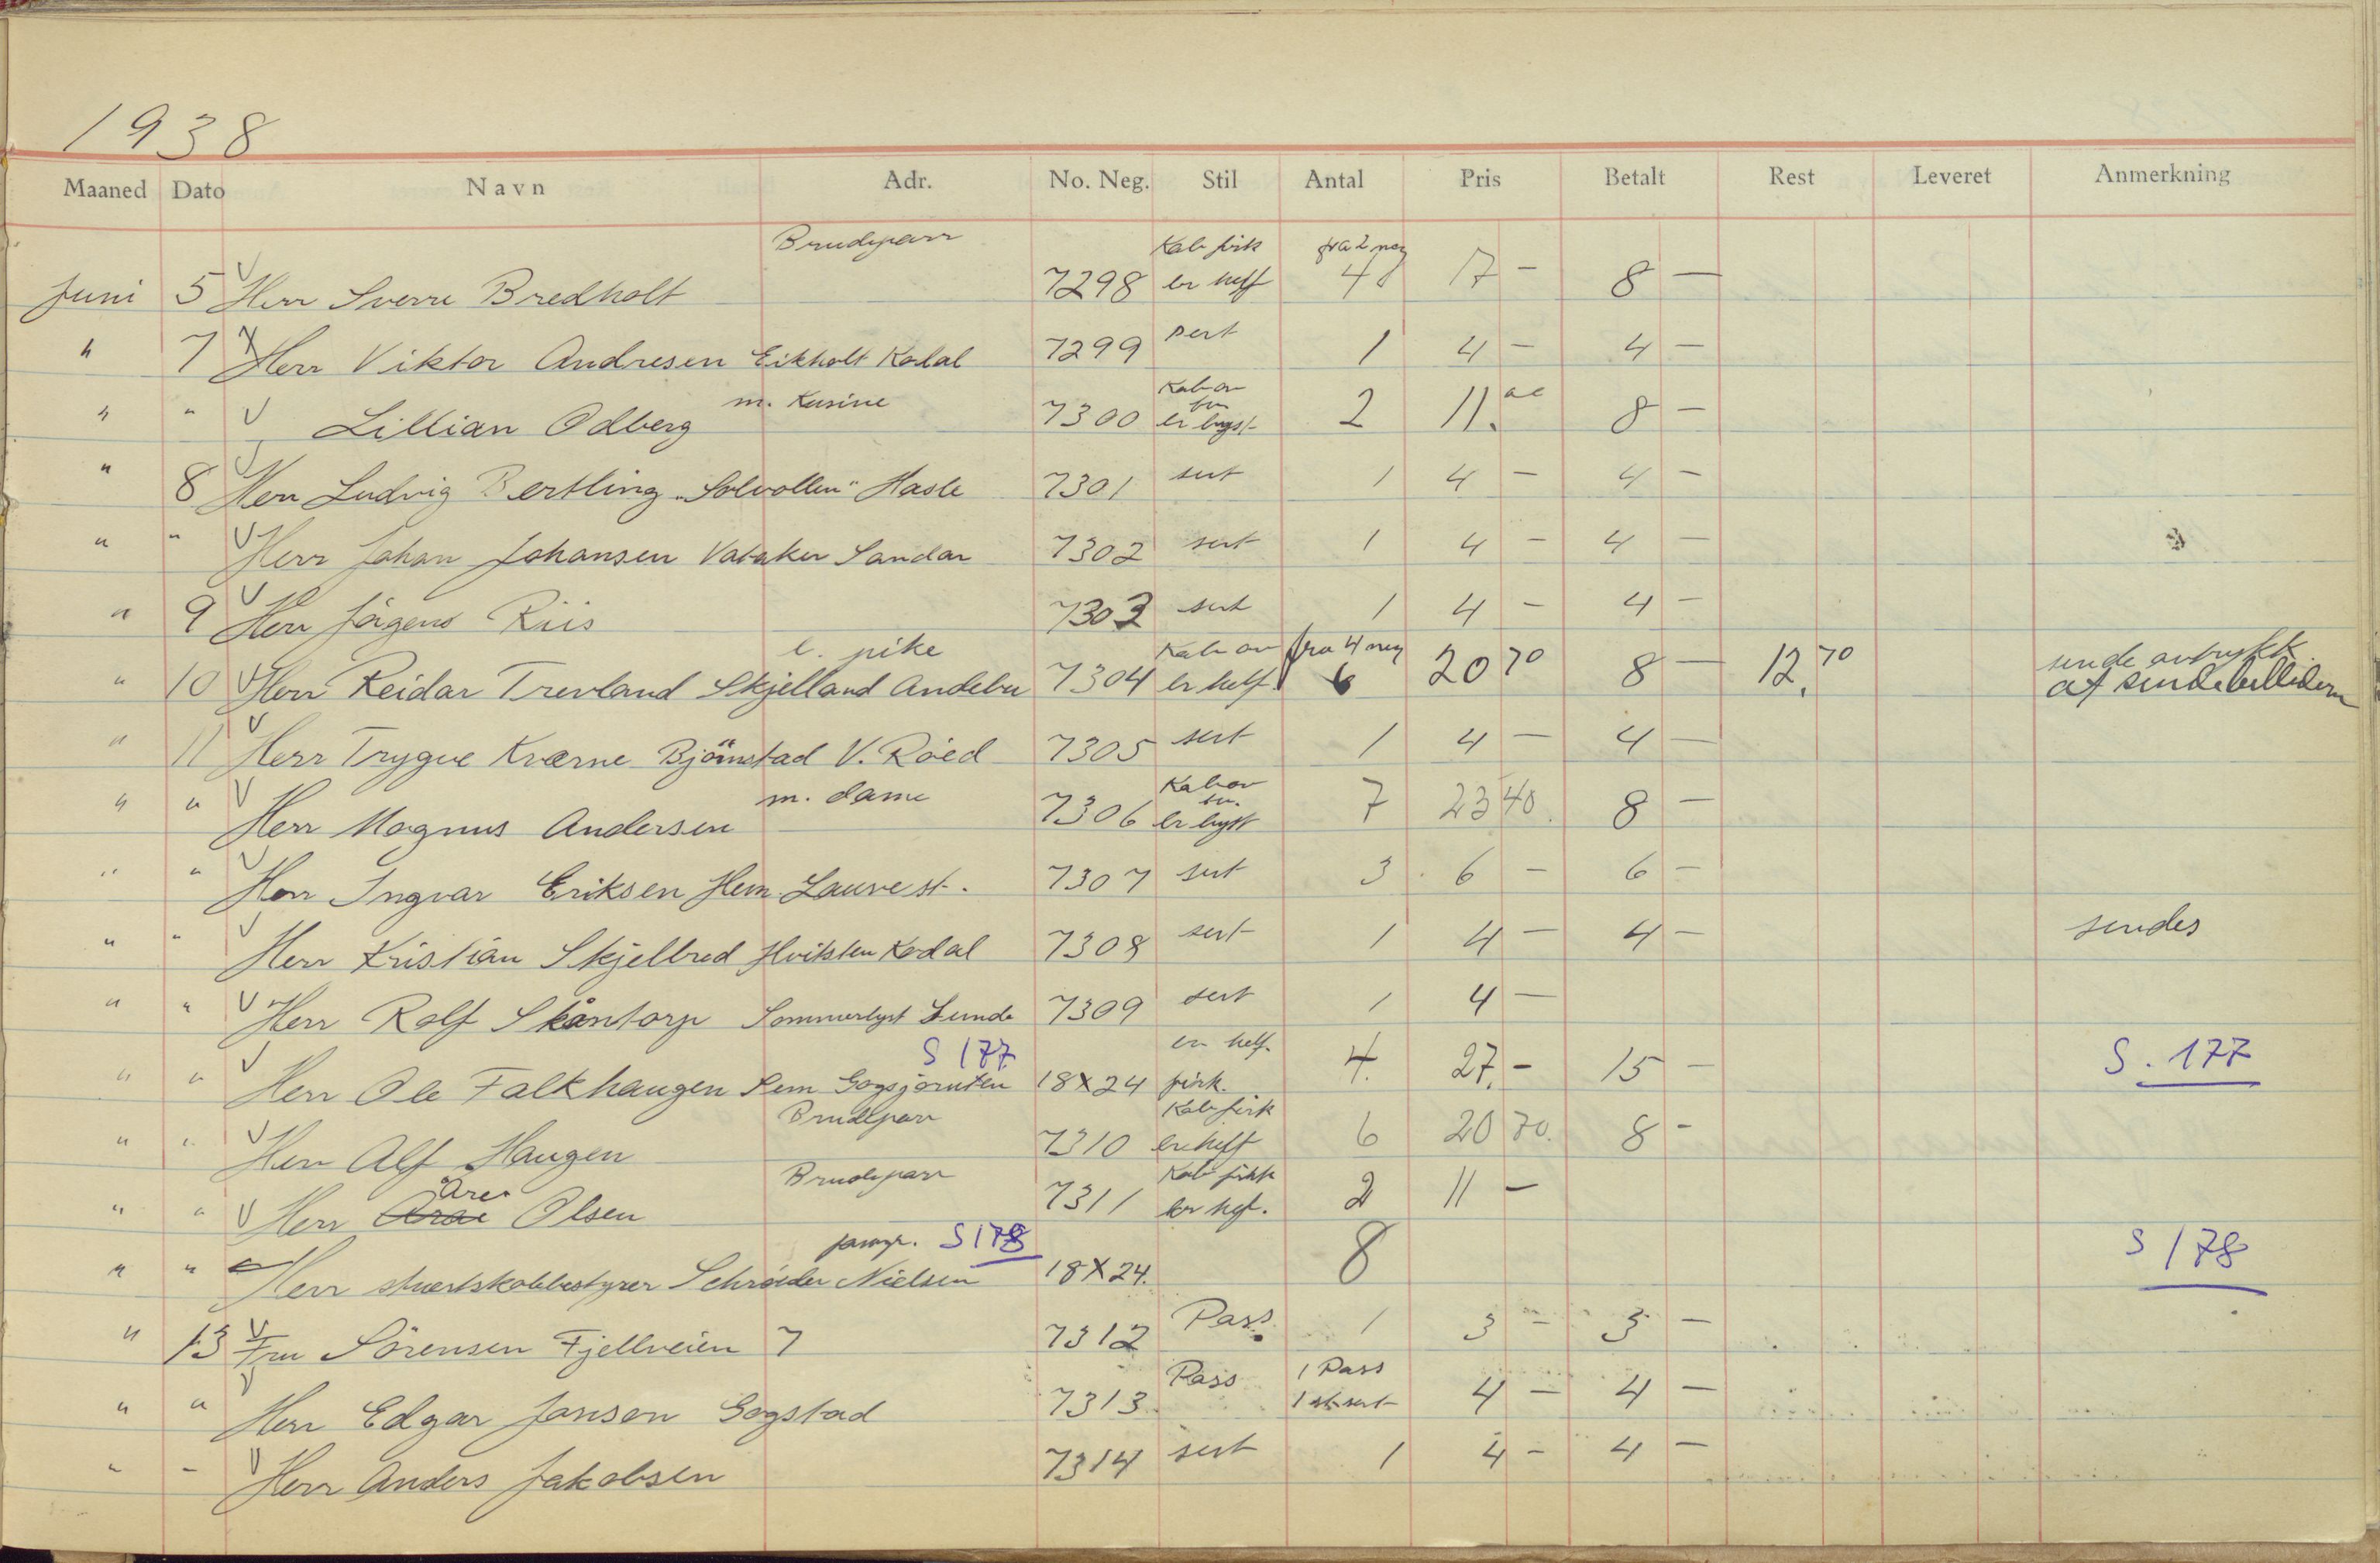 1938
Maaned Dato Navn Adr. No. Neg. Stil Antal Pris Betalt Rest Leveret Anmerkning
Brudepar Kab fra 2 neg
Juni 5 V Herr Sverre Bredholt 7298 4 17 - 8 -
" 7 V Herr Viktor Andresen Eikholt Kodal 7299 sert 1 4 - 4 -
m. Kusine Kab
" " V Lillian Odberg 7300 2 11. 8 -
" 8 V Herr Ludvig Bertling "Solvollen" Hasle 7301 sert 1 4 - 4 -
" " V Herr Johan Johansen Vataker Sandar 7302 sert 1 4 - 4 -
" 9 V Herr Jörgens Riis 7303 sert 1 4 - 4 -
l. pike Kab fra 4 neg sende avtrykk
" 10 V Herr Reidar Trevland Skjelland Andebu 7304 er helf 6 20 70 8 - 12.70 at
" 11 V Herr Trygve Kværne Björnstad V. Röed 7305 sert 1 4 - 4 -
m. dame Kab
" " V Herr Magnus Andersen 7306 er byst 7 23 40. 8 -
" " V Herr Ingvar Eriksen Hem. Lauve st. 7307 sert 3 6 - 6 -
" " V Herr Kristian Skjellred Hvitsten Kodal 7308 sert 1 4 - 4 - sendes
" " V Herr Rolf Skåntorp Sommerlyst Lunde 7309 sert 1 4 -
S 177 en helf.
" " V Herr Ole Falkhaugen Sem 18X24 firk. 4. 27.- 15 - S. 177
Brudepar Kab firk
" " V Herr Alf Haugen 7310 er helf 6 20 70. 8 -
Are Brudepar Kab firk
" " V Herr Olsen 7311 2 11 -
S 178
" " Herr Schröder Nielsen 18X24. 8 S 178
" 13 V Fru Sörensen Fjellveien 7 7312 Pass. 1 3 - 3 -
Pass 1 Pass
" " V Herr Edgar Jansen Gogstad 7313 1 st sert 4 - 4 -
" - V Herr Anders Jakobsen 7314 sert 1 4 - 4 -